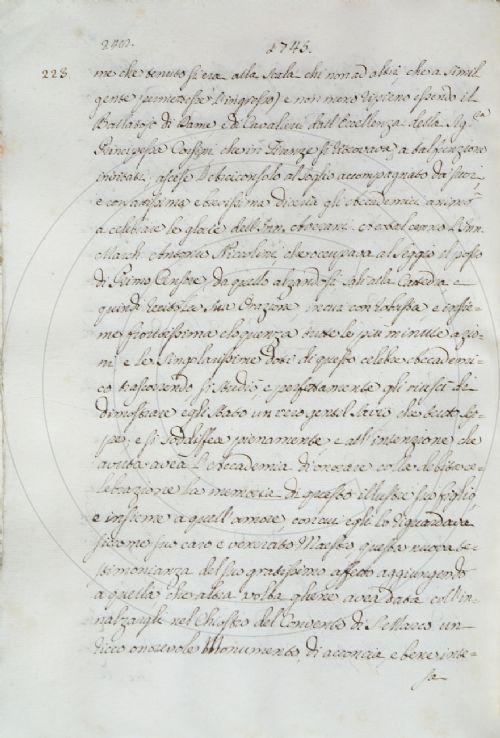 1743.
223.
me che tenuto si era alla Scala chi non ad altri, che a simil
gente permettesse l'ingresso) e non meno ripieno essendo il
di Dame e da Cavalieri dall'Eccellenza della Sig.ra
Principessa Corsini che in Firenze si ritrovava, a tal funzione
invitati, ascese l'Arciconsolo al soglio accompagnato da suoi,
e con brevissima diceria gli Accademici animò
a celebrare le glorie dell' ed ebbe l'
March. Antonio Niccolini, che occupava al seggio il posto
di Primo Censore, da quello alzandosi salì alla Cattedra e
quindi recitò la sua Orazione, in cui con robusta, e insie=
me fioritissima eloquenza tutte le più minute azio=
ni, e le singolarissime doti di questo celebre Accademi=
co trascorrendo si studiò, e perfettamente gli riuscì di
dimostrare egli stato un vero gentil Savio che tutto sep=
pe, e si soddisfece pienamente, e all'intenzione che
avuta avea l'Accademia di onorare colle debite ce=
lebrazione la memoria di questo illustre suo figlio,
e insieme a quell'amore, con cui egli lo riguardava
siccome suo caro e venerato Maestro questa nuova te=
stimonianza del suo gratissimo affetto aggiungendo
a quella che altra volta gliene avea data coll'in=
nalzargli nel Chiostro del Convento di S. Marco un
ricco onorevole Monumento, di acconcia, e bene inte=
sa